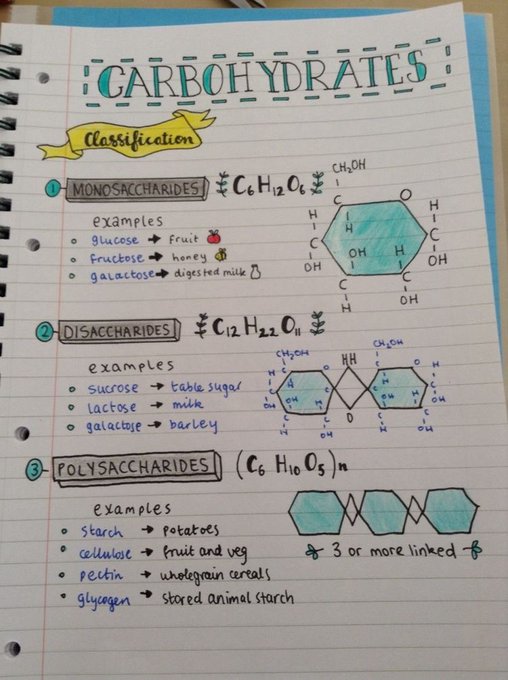 CARBOHYDRATES
Classification
1 MONOSACCHARIDES C6H12O6
examples
glucose → fruit
fructose → honey
galactose → digested milk
CH2OH
C O
H H H
C C
OH OH H OH
C C
H OH
2 DISACCHARIDES C12H22O11
examples
sucrose → table sugar
lactose → milk
galactose → barley
CH2OH HH CH2OH
O
3 POLYSACCHARIDES (C6 H10 O5)n
examples
starch → potatoes
cellulose → fruit and veg
pectin → wholegrain cereals
glycogen → stored animal starch
3 or more linked